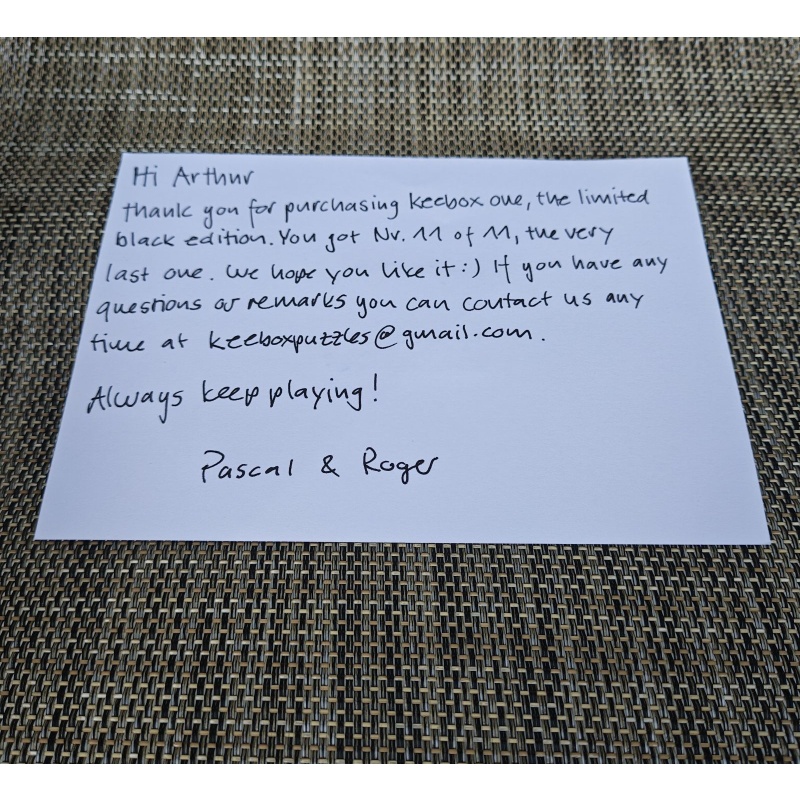 Hi Arthur
thank you for purchasing keebox one, the limited
black edition. You got Nr. 11 of 11, the very
last one. We hope you like it :) If you have any
questions or remarks you can contact us any
time at keeboxpuzzles@gmail.com.
Always keep playing!
Pascal & Roger